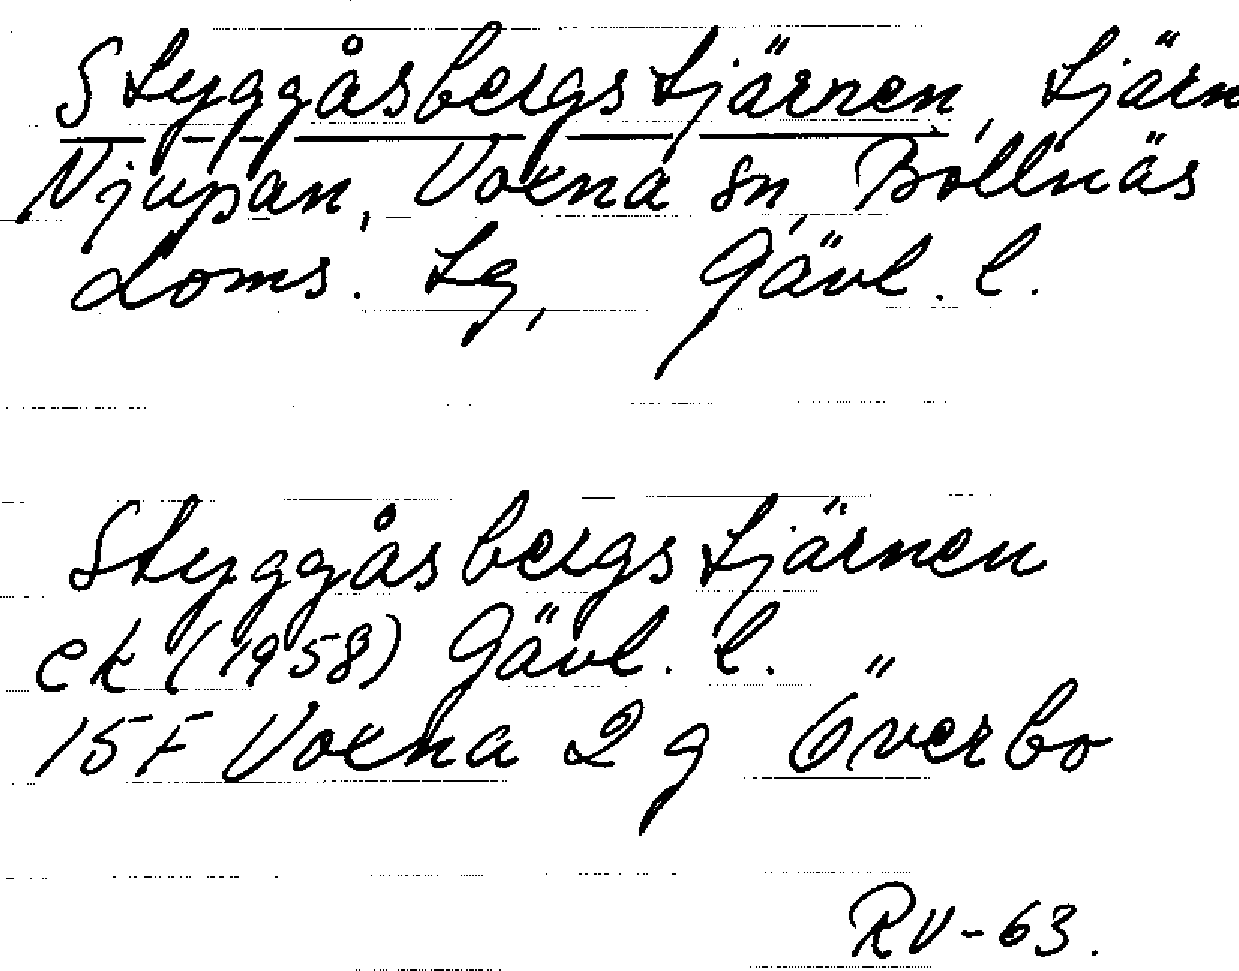 Styggåsbergstjärnen, tjärn
Njupan, Voxna sn, Bollnäs
doms. lg, Gävl. l.
Styggåsbergstjärnen
ek (1958) Gävl. l.
15F Voxna 2 g Överbo
RV-63.